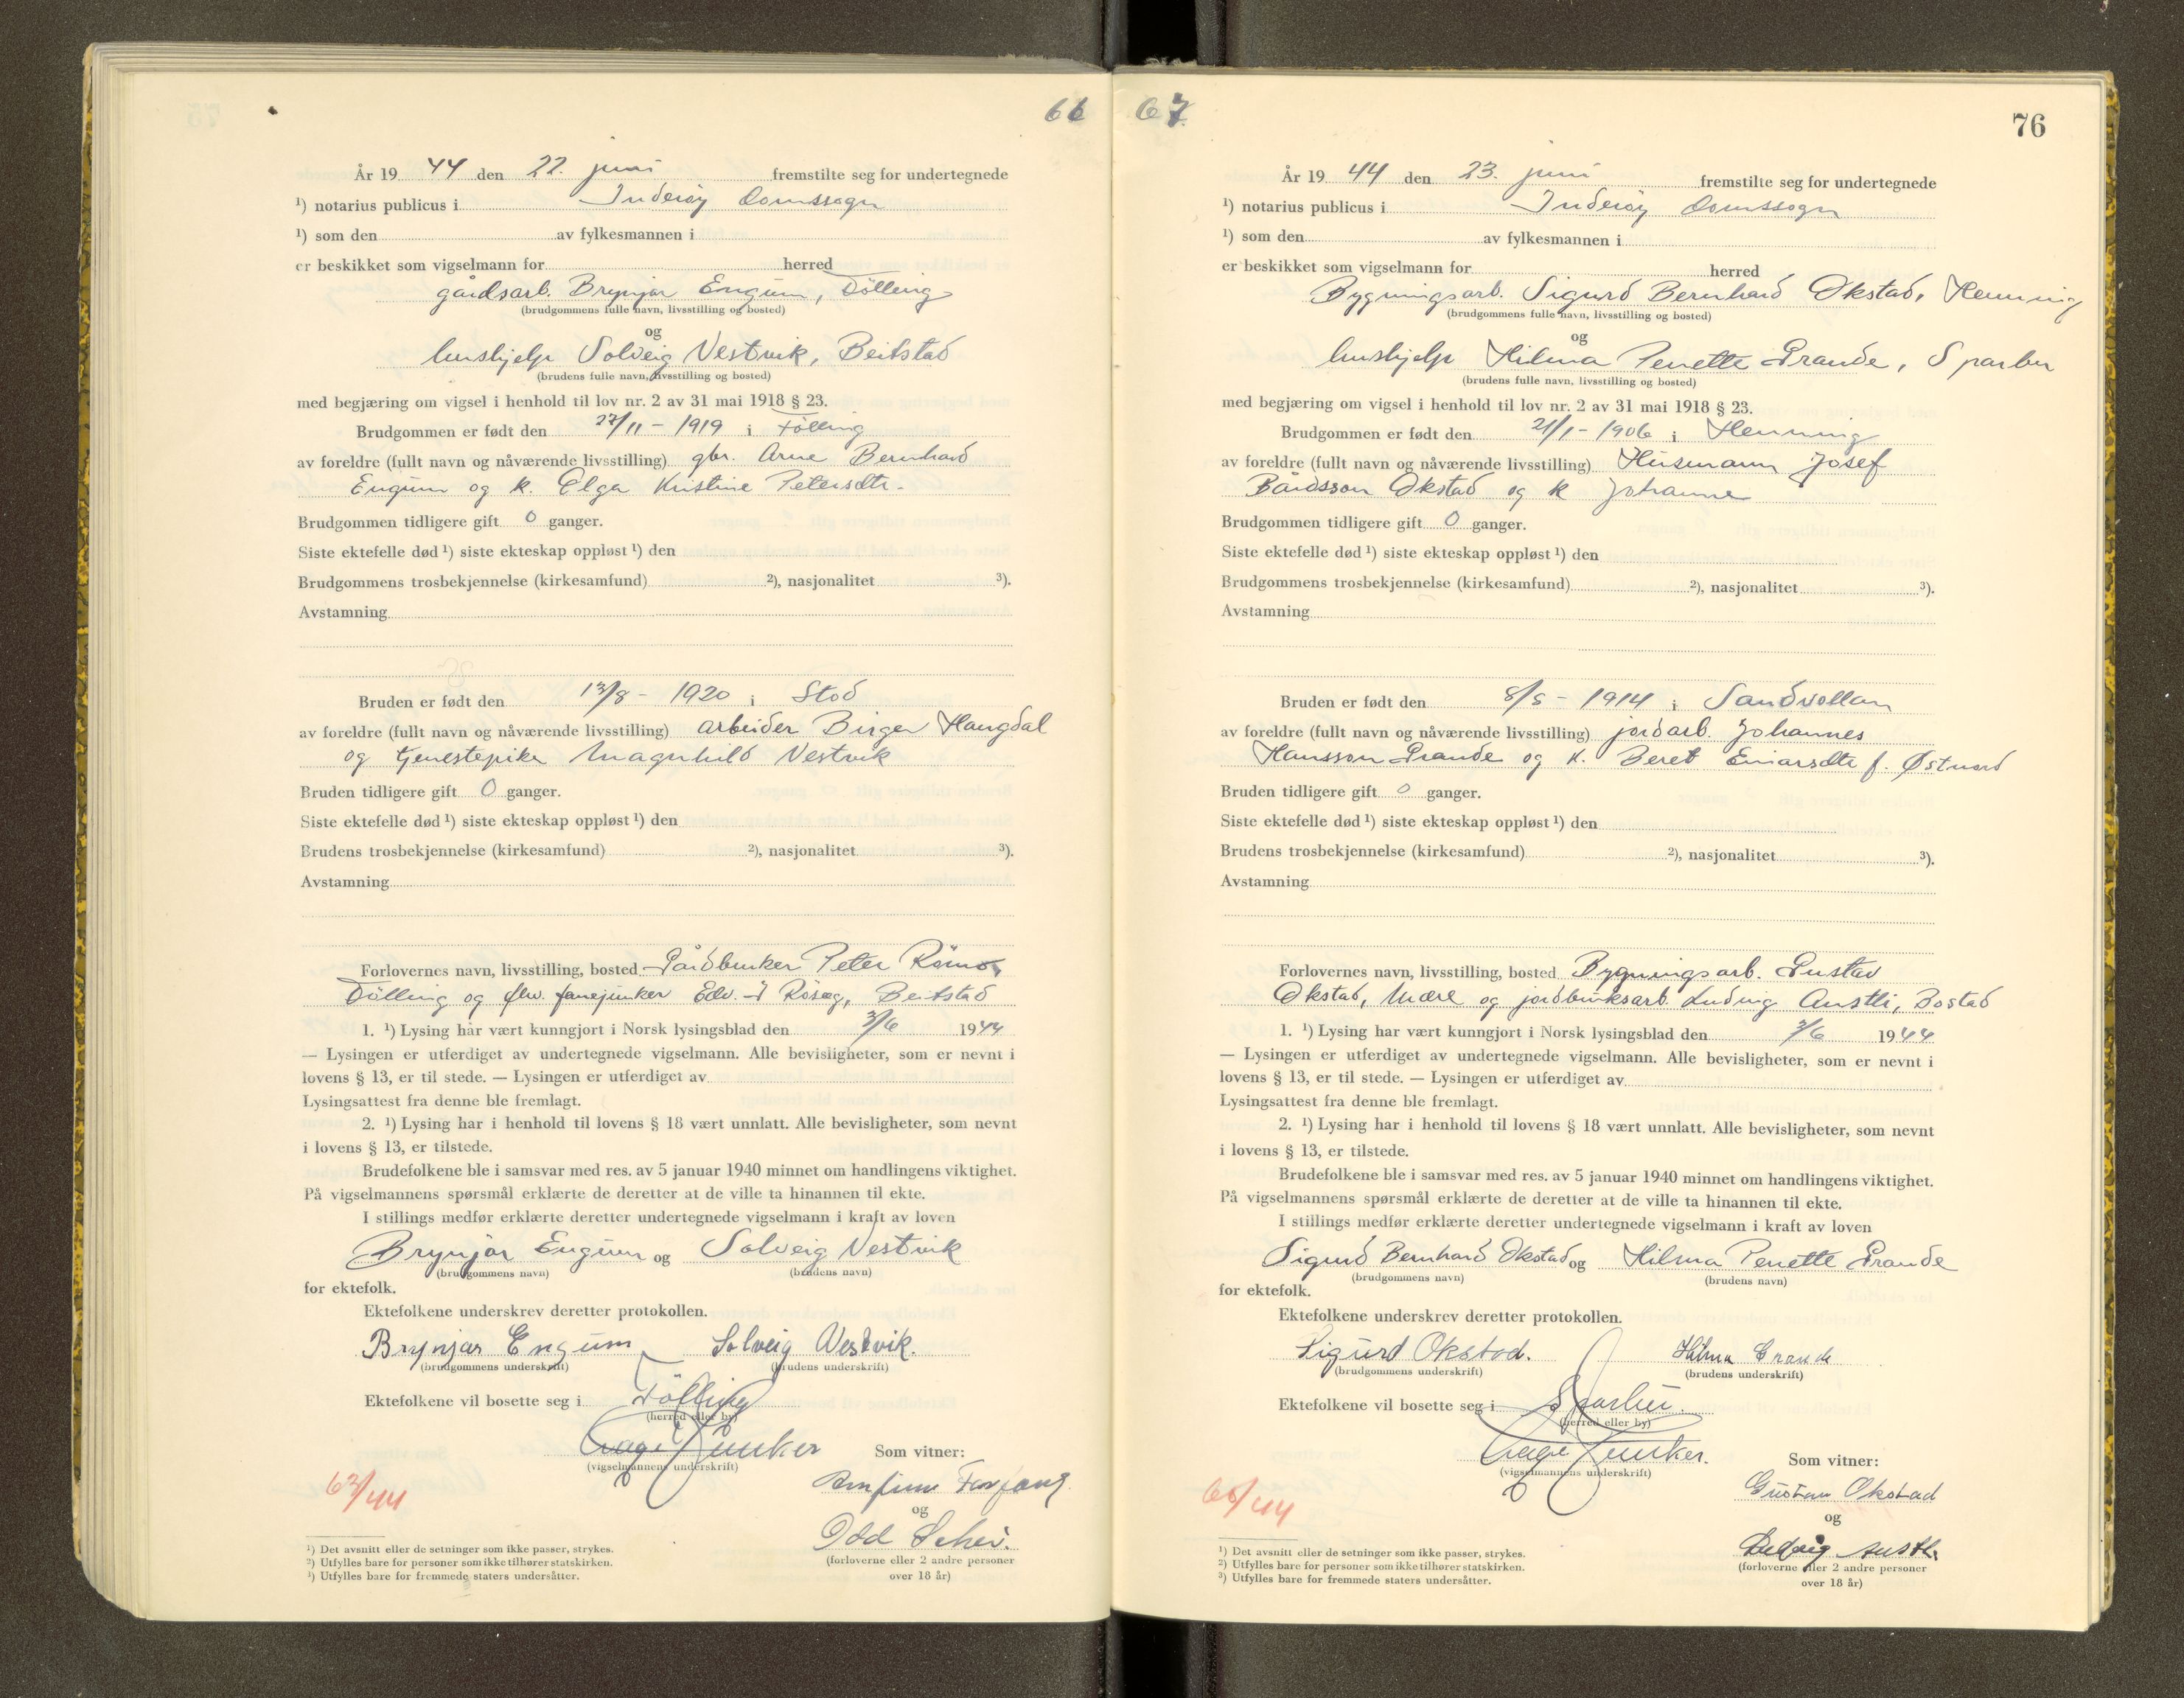 66
År 19 44 den 22. juni fremstilte seg for undertegnede
¹) notarius publicus i Inderøy domssogn
¹) som den av fylkesmannen i
er beskikket som vigselmann for herred
gårdsarb. Brynjar Engum, Følling
(brudgommens fulle navn, livsstilling og bosted)
og
hushjelp Solveig Vestvik, Beitstad
(brudens fulle navn, livsstilling og bosted)
med begjæring om vigsel i henhold til lov nr. 2 av 31 mai 1918 § 23.
Brudgommen er født den 27/11 - 1919 i Følling
av foreldre (fullt navn og nåværende livsstilling) gbr. Arne Bernhard
Engum og k. Elga Kristine Petersdtr.
Brudgommen tidligere gift 0 ganger.
Siste ektefelle død ¹) siste ekteskap oppløst ¹) den
Brudgommens trosbekjennelse (kirkesamfund) ²), nasjonalitet ³).
Avstamning
Bruden er født den 13/8 - 1920 i Stod
av foreldre (fullt navn og nåværende livsstilling) arbeider Birger Haugdal
og tjenestepike Magnhild Vestvik
Bruden tidligere gift 0 ganger.
Siste ektefelle død ¹) siste ekteskap oppløst ¹) den
Brudens trosbekjennelse (kirkesamfund) ²), nasjonalitet ³).
Avstamning
Forlovernes navn, livsstilling, bosted Gårdbruker Peter
Følling og fanejunker Edv. Beitstad
1. ¹) Lysing har vært kunngjort i Norsk lysingsblad den 3/6 1944
— Lysingen er utferdiget av undertegnede vigselmann. Alle bevisligheter, som er nevnt i
lovens § 13, er til stede. — Lysingen er utferdiget av
Lysingsattest fra denne ble fremlagt.
2. ¹) Lysing har i henhold til lovens § 18 vært unnlatt. Alle bevisligheter, som nevnt
i lovens § 13, er tilstede.
Brudefolkene ble i samsvar med res. av 5 januar 1940 minnet om handlingens viktighet.
På vigselmannens spørsmål erklærte de deretter at de ville ta hinannen til ekte.
I stillings medfør erklærte deretter undertegnede vigselmann i kraft av loven
Brynjar Engum og Solveig Vestvik
(brudgommens navn) (brudens navn)
for ektefolk.
Ektefolkene underskrev deretter protokollen.
Brynjar Engum Solveig Vestvik.
(brudgommens underskrift) (brudens underskrift)
Ektefolkene vil bosette seg i Følling
(herred eller by)
Aage Junker
(vigselmannens underskrift)
Som vitner:
63/44
og
Odd
(forloverne eller 2 andre personer
over 18 år)
¹) Det avsnitt eller de setninger som ikke passer, strykes.
²) Utfylles bare for personer som ikke tilhører statskirken.
³) Utfylles bare for fremmede staters undersåtter.
67
76
År 19 44 den 23. juni fremstilte seg for undertegnede
¹) notarius publicus i Inderøy domssogn
¹) som den av fylkesmannen i
er beskikket som vigselmann for herred
Bygningsarb. Sigurd Bernhard Økstad, Henning
(brudgommens fulle navn, livsstilling og bosted)
og
hushjelp Hilma Penette Grande, Sparbu
(brudens fulle navn, livsstilling og bosted)
med begjæring om vigsel i henhold til lov nr. 2 av 31 mai 1918 § 23.
Brudgommen er født den 21/1 - 1906 i Henning
av foreldre (fullt navn og nåværende livsstilling) Husmann Josef
Bårdsson Økstad og k Johanne
Brudgommen tidligere gift 0 ganger.
Siste ektefelle død ¹) siste ekteskap oppløst ¹) den
Brudgommens trosbekjennelse (kirkesamfund) ²), nasjonalitet ³).
Avstamning
Bruden er født den 8/5 - 1914 i Sandvollan
av foreldre (fullt navn og nåværende livsstilling) jordarb. Johannes
Hansson Grande og k. Beret Einarsdtr f.
Bruden tidligere gift 0 ganger.
Siste ektefelle død ¹) siste ekteskap oppløst ¹) den
Brudens trosbekjennelse (kirkesamfund) ²), nasjonalitet ³).
Avstamning
Forlovernes navn, livsstilling, bosted Bygningsarb. Gustav
Økstad, Mære og jordbruksarb. Ludvig Austli,
1. ¹) Lysing har vært kunngjort i Norsk lysingsblad den 3/6 1944
— Lysingen er utferdiget av undertegnede vigselmann. Alle bevisligheter, som er nevnt i
lovens § 13, er til stede. — Lysingen er utferdiget av
Lysingsattest fra denne ble fremlagt.
2. ¹) Lysing har i henhold til lovens § 18 vært unnlatt. Alle bevisligheter, som nevnt
i lovens § 13, er tilstede.
Brudefolkene ble i samsvar med res. av 5 januar 1940 minnet om handlingens viktighet.
På vigselmannens spørsmål erklærte de deretter at de ville ta hinannen til ekte.
I stillings medfør erklærte deretter undertegnede vigselmann i kraft av loven
Sigurd Bernhard Økstad og Hilma Penette Grande
(brudgommens navn) (brudens navn)
for ektefolk.
Ektefolkene underskrev deretter protokollen.
Sigurd Økstad. Hilma Grande
(brudgommens underskrift) (brudens underskrift)
Ektefolkene vil bosette seg i Sparbu.
(herred eller by)
Aage Junker.
(vigselmannens underskrift)
Som vitner:
Gustav Økstad
og
Ludvig Austli
(forloverne eller 2 andre personer
over 18 år)
¹) Det avsnitt eller de setninger som ikke passer, strykes.
²) Utfylles bare for personer som ikke tilhører statskirken.
³) Utfylles bare for fremmede staters undersåtter.